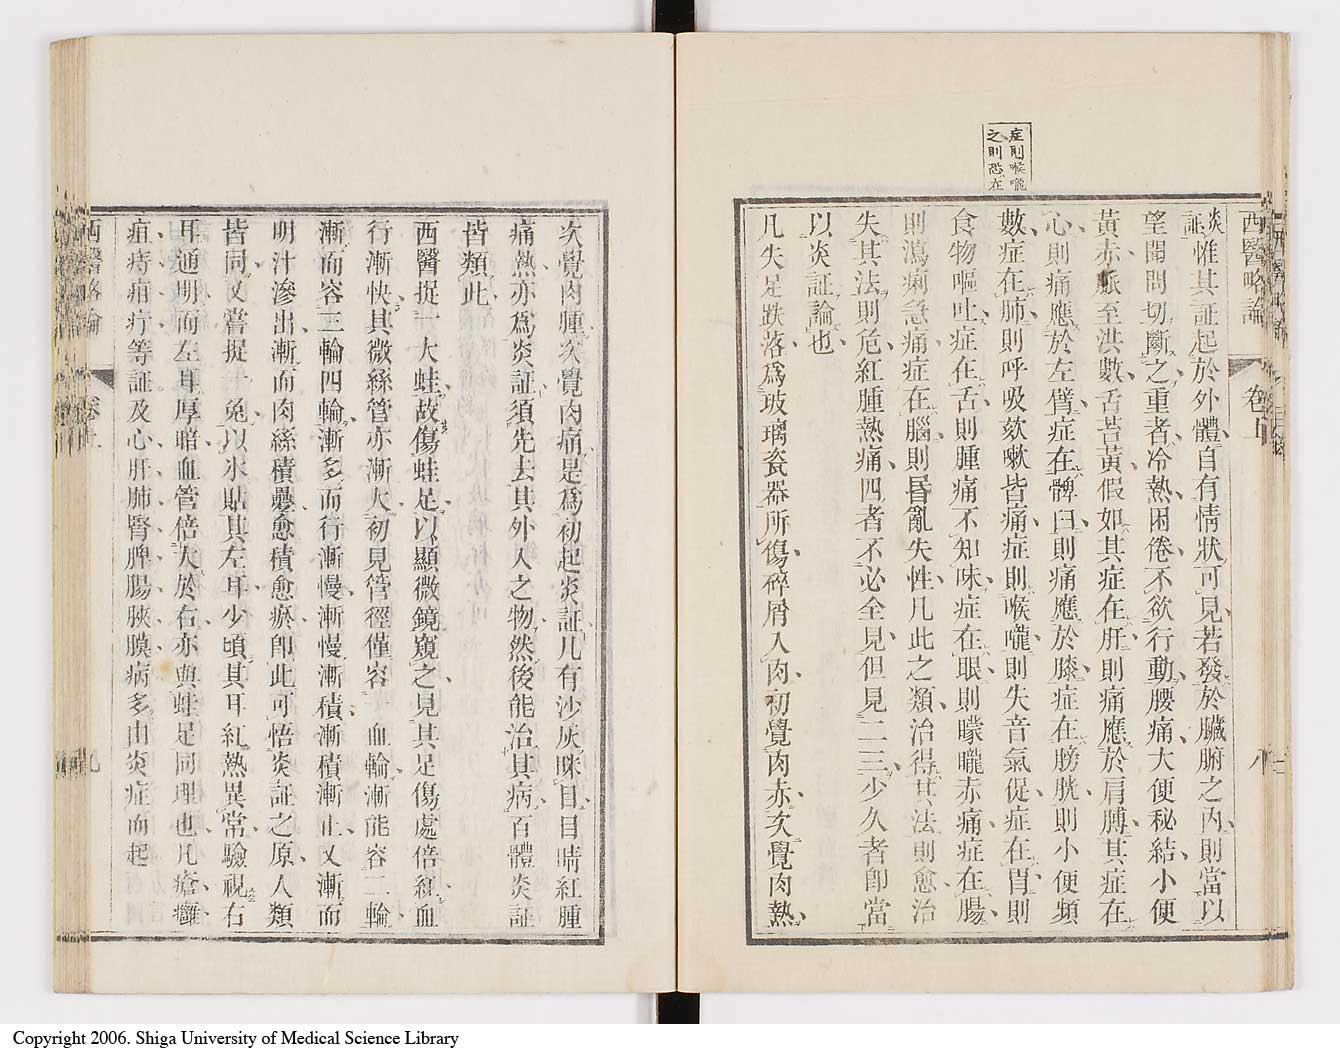 症則喉嚨
之則恐在
西醫略論
卷上
八
炎証惟其証起於外體自有情狀可見若發於臟腑之內則當以
望聞問切斷之重者冷熱困倦不欲行動腰痛大便秘結小便
黃赤脈至洪數舌苔黃假如其症在肝則痛應於肩膊其症在
心則痛應於左臂症在髀臼則痛應於膝症在膀胱則小便頻
數症在肺則呼吸欬嗽皆痛症則喉嚨則失音氣促症在胃則
食物嘔吐症在舌則腫痛不知味症在眼則矇矓赤痛症在腸
則瀉痢急痛症在腦則昏亂失性凡此之類治得其法則愈治
失其法則危紅腫熱痛四者不必全見但見二三少久者即當
以炎証論也
凡失足跌落為玻璃瓷器所傷碎屑入肉初覺肉赤次覺肉熱
次覺肉腫次覺肉痛是為初起炎証凡有沙灰眯目目睛紅腫
痛熱亦為炎証須先去其外入之物然後能治其病百體炎証
皆類此
西醫捉一大蛙故傷蛙足以顯微鏡窺之見其足傷處倍紅血
行漸快其微絲管亦漸大初見管徑僅容一血輪漸能容二輪
漸而容三輪四輪漸多而行漸慢漸慢漸積漸積漸止又漸而
明汁滲出漸而肉絲積壘愈積愈瘀即此可悟炎証之原人類
皆同又嘗捉一兔以氷貼其左耳少頃其耳紅熱異常驗視右
耳通明而左耳厚暗血管倍大於右亦與蛙足同理也凡瘡癰
疽痔疳疔等証及心肝肺腎脾腸胰膜病多由炎症而起
西醫略論
卷上
九